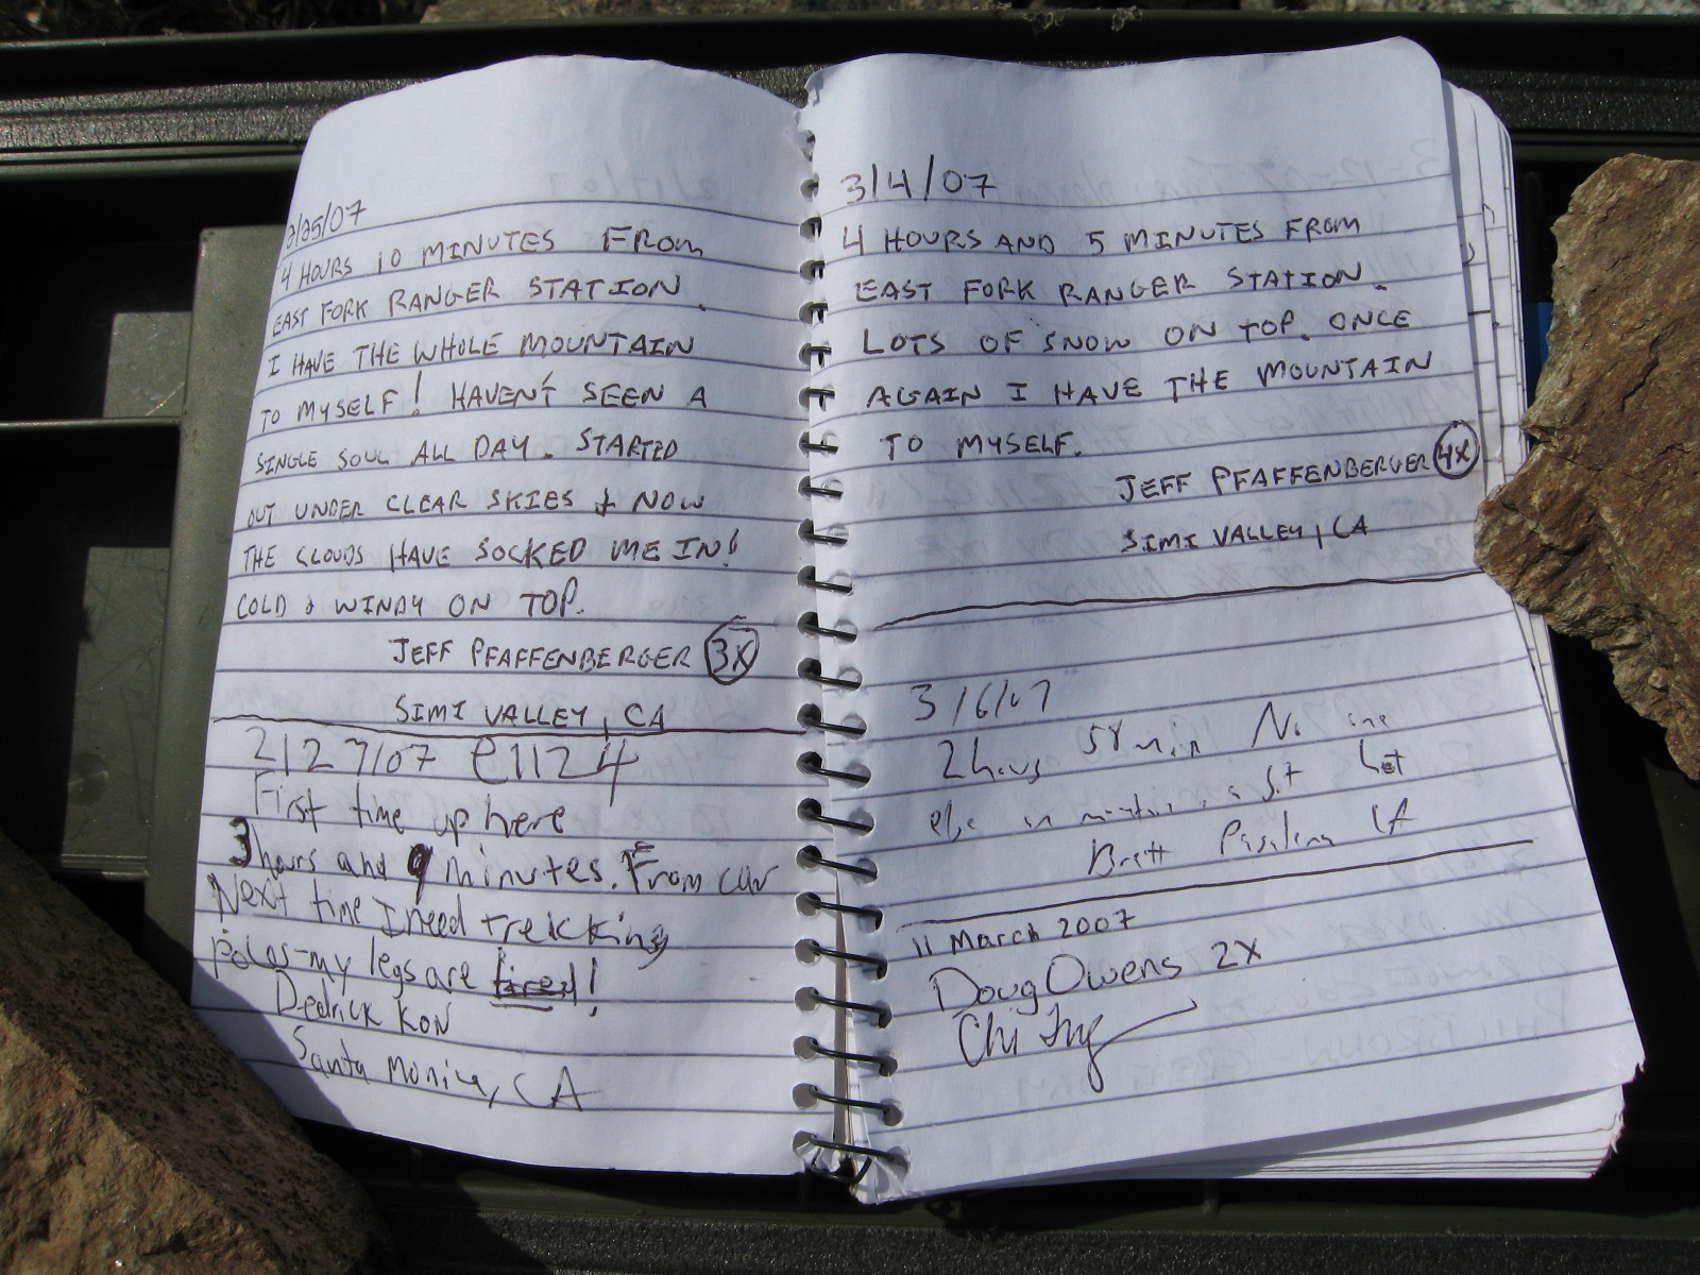 2/25/07
4 HOURS 10 MINUTES FROM
EAST FORK RANGER STATION.
I HAVE THE WHOLE MOUNTAIN
TO MYSELF! HAVEN'T SEEN A
SINGLE SOUL ALL DAY. STARTED
OUT UNDER CLEAR SKIES & NOW
THE CLOUDS HAVE SOCKED ME IN!
COLD & WINDY ON TOP.
JEFF PFAFFENBERGER 3X
SIMI VALLEY, CA
2/27/07 @1124
First time up here
3 hours and 9 minutes. From car
Next time I need trekking
poles-my legs are tired!
Dedrick Kon
Santa Monica, CA
3/4/07
4 HOURS AND 5 MINUTES FROM
EAST FORK RANGER STATION.
LOTS OF SNOW ON TOP. ONCE
AGAIN I HAVE THE MOUNTAIN
TO MYSELF.
JEFF PFAFFENBERGER 4X
SIMI VALLEY, CA
3/6/07
2 hours 58 min No one
else on
Brett Pasadena CA
11 March 2007
Doug Owens 2X
Chi